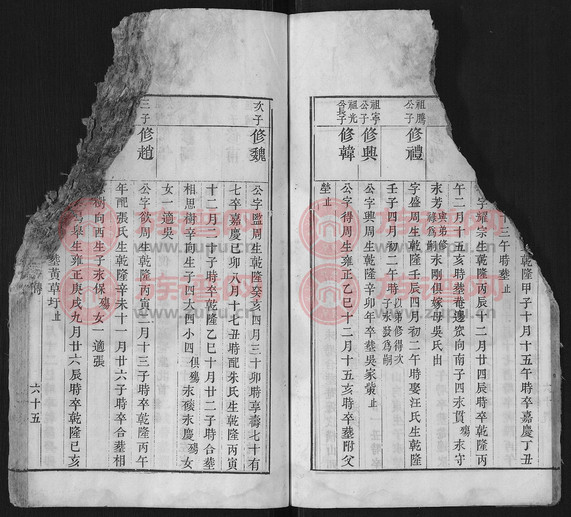 乾隆甲子十月十五午時卒嘉慶丁丑
三午時塟止
祖鵬公子
修禮
字耀宗生乾隆丙辰十二月廿四辰時卒乾隆丙
午二月十五亥時塟菴邊窊向南子四永貫殤永守
永芳與弟修祿爲嗣永剛俱嫁母吳氏出
字盛周生乾隆壬辰四月初二午時娶汪氏生乾隆
壬子四月初二午時子永發爲嗣以弟修得次
祖寧公子
修興
公字興周生乾隆辛卯年卒塟吳家
止
祖光公長子
修韓
公字得周生雍正乙巳十二月十五亥時卒塟附父
塋止
次子
修魏
公字監周生乾隆癸亥四月三十卯時享壽七十有
七卒嘉慶己卯八月十七丑時配朱氏生乾隆丙寅
十二月二十子時卒乾隆乙巳十月廿二子時合塟
相思樹辛向生子四大四小四俱殤永
永慶殤女
女一適吳
三子
修趙
公字欲周生乾隆丙寅三月十三子時卒乾隆丙午
年配張氏生乾隆辛未十一月廿六子時卒合塟相
樹向西生子永保殤女一適張
爲舉生雍正庚戌九月廿六辰時卒乾隆己亥
塟黃草圩止
傳
六十五
东方文网
www.zupu.cn